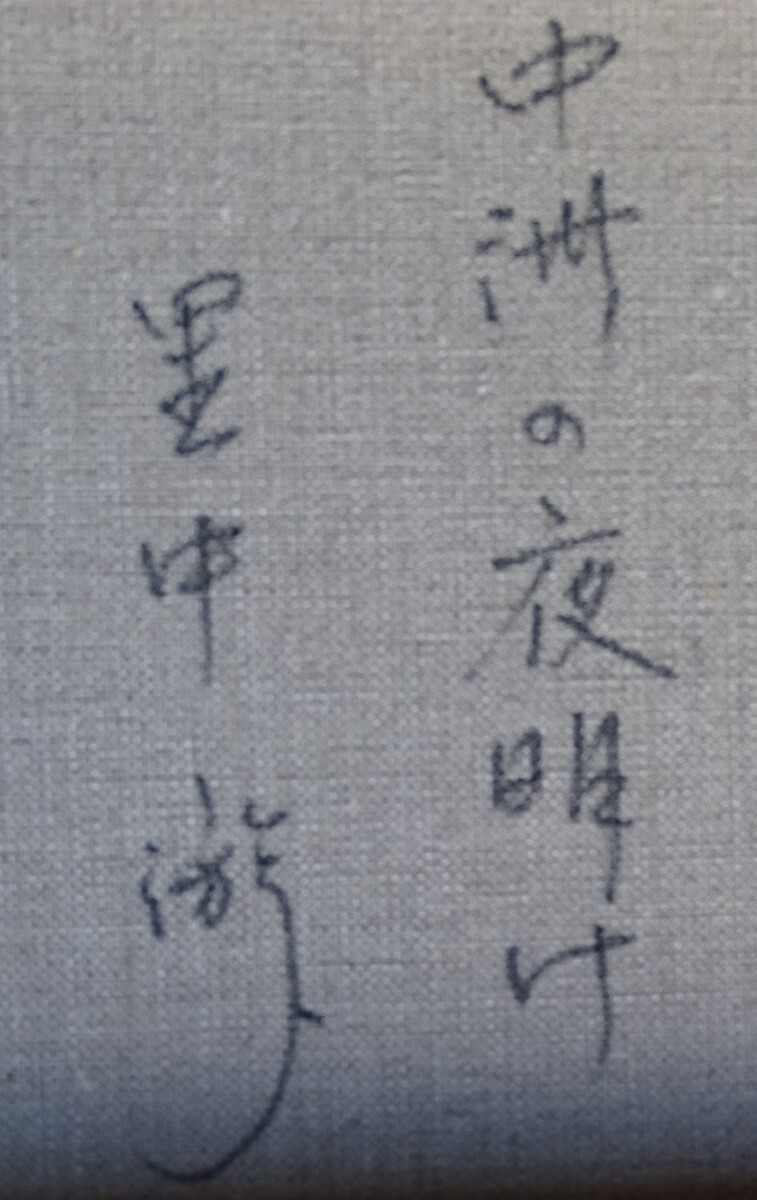 中洲の夜明け
里中游